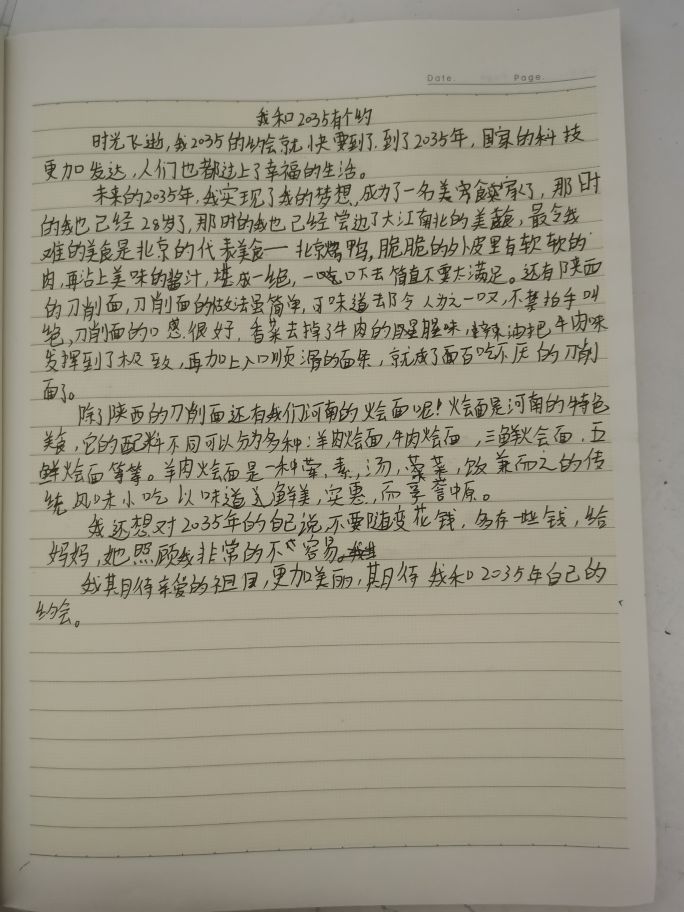 Date.
Page.
我和2035有个约
时光飞逝,我2035的约会就快要到了.到了2035年,国家的科技
更加发达,人们也都过上了幸福的生活。
未来的2035年,我实现了我的梦想,成为了一名美食家了,那时
的我也已经28岁了,那时的我也已经尝边了大江南北的美食,最令我
难的美食是北京的代表美食一北京烤鸭,脆脆的外皮里有软软的
肉,再沾上美味的酱汁,堪成一绝,一吃口下去简直不要太满足。还有陕西
的刀削面,刀削面的做法虽简单,可味道却令人为之一叹,不禁拍手叫
绝,刀削面的口感很好,香菜去掉了牛肉的腥味,辣油把牛肉味
发挥到了极致,再加上入口顺滑的面条,就成了面百吃不厌的刀削
面了。
除了陕西的刀削面还有我们河南的烩面呢!烩面是河南的特色
美食,它的配料不同可以分为多种:羊肉烩面,牛肉烩面,三鲜烩面,五
鲜烩面等等。羊肉烩面是一种荤,素,汤,菜,饭兼而之的传
统风味小吃以味道鲜美,实惠,而享誉中原。
我还想对2035年的自己说,不要随变花钱,多存一些钱,给
妈妈,她照顾我非常的不容易。
我期待亲爱的祖国,更加美丽,期待我和2035年自己的
约会。